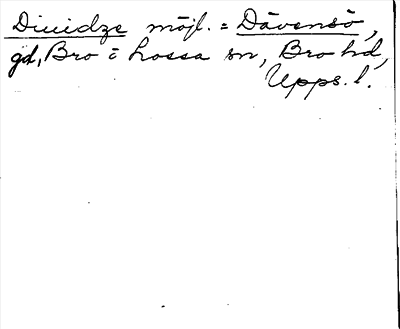 Diuidze möjl. = Dävensö,
gd, Bro o Lossa sn, Bro hd,
Upps. l.